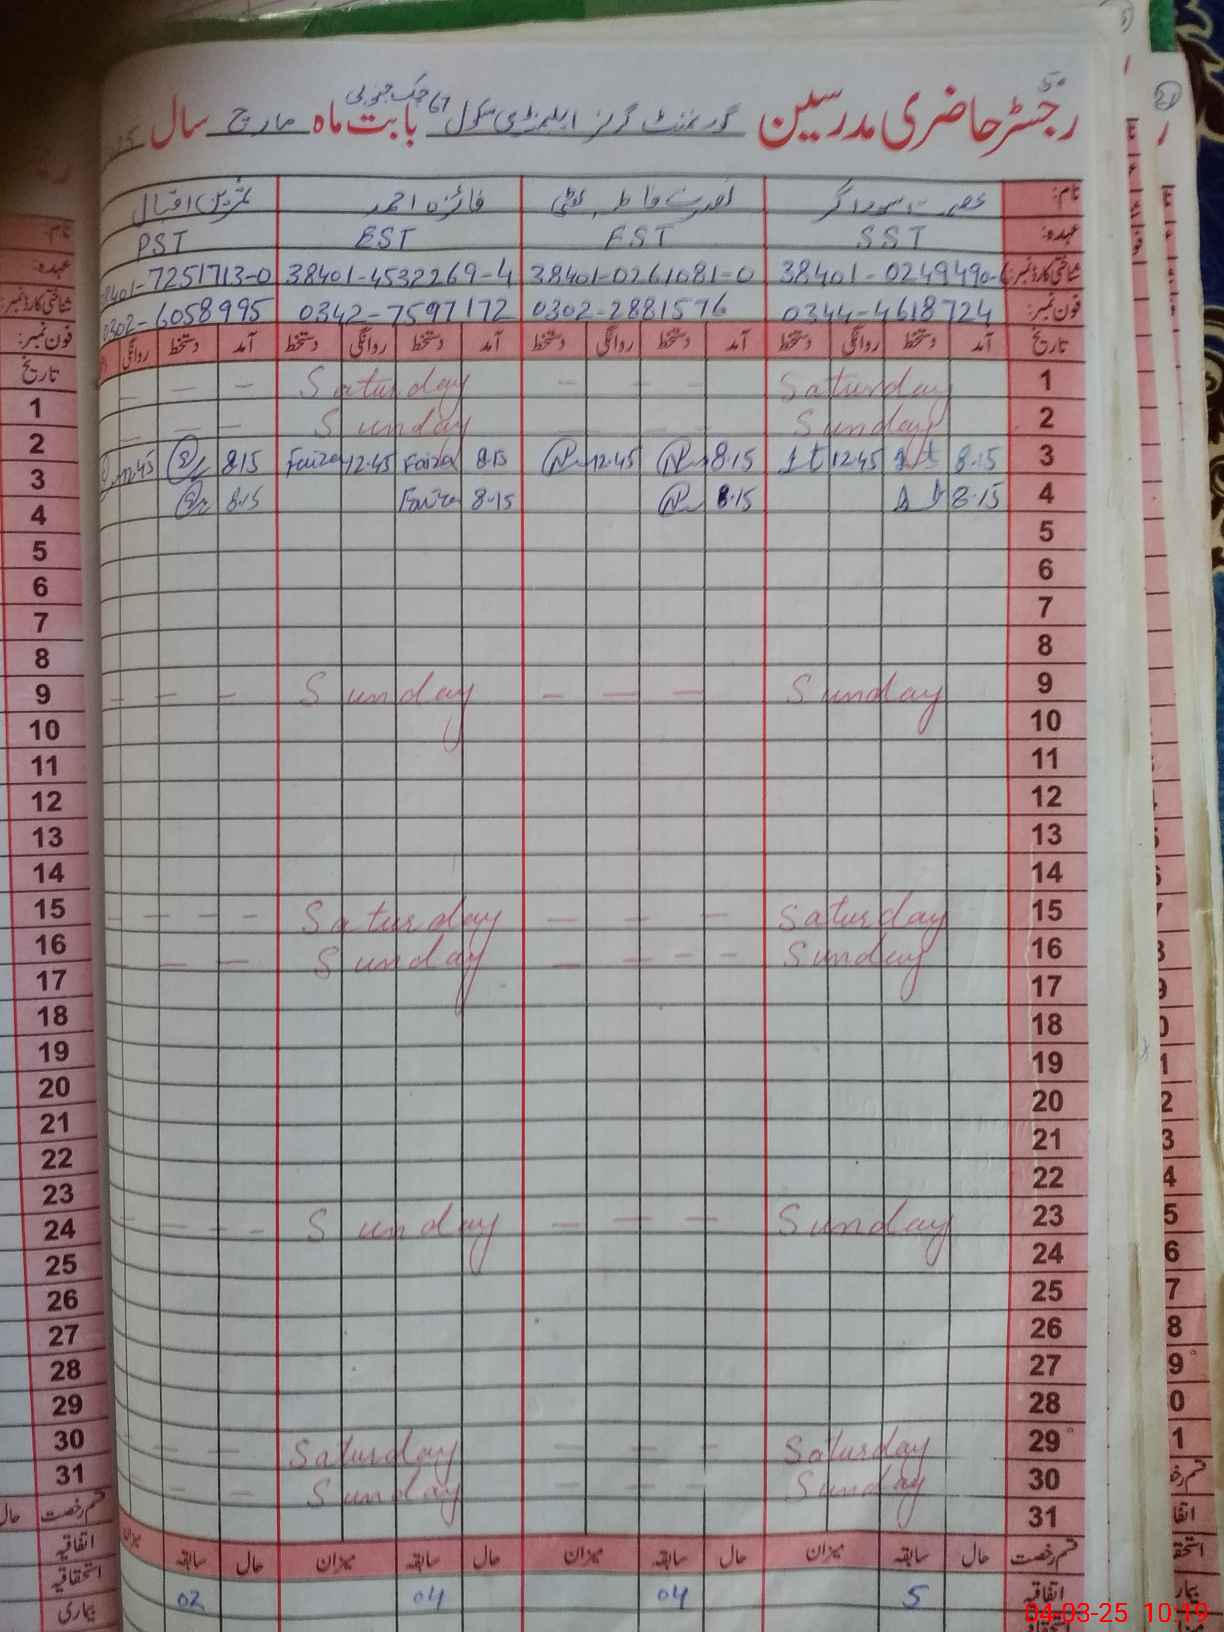 رجسٹر حاضری مدرسین گورنمنٹ گرلز ایلیمنٹری سکول 67 چک جنوبی بابت ماہ مارچ سال
نام: فائزہ احمد ثمرین اقبال
عہدہ: SST EST PST
شناختی کارڈ نمبر: 38401-0249490- 38401-0261081-0 38401-4532269-4 7251713-0
فون نمبر: 0344-4618724 0302-2881576 0342-7597172 0302-6058995
تاریخ آمد دستخط روانگی دستخط آمد دستخط روانگی دستخط آمد دستخط روانگی دستخط آمد دستخط روانگی
1 Saturday - - - Saturday - - -
2 Sunday - - - Sunday - - -
3 8.15 12.45 8.15 12.45 8.15 Faiza 12.45 Faiza 8.15 12.45
4 8.15 8.15 8-15 Faiza 8.15
5
6
7
8
9 Sunday - - - Sunday - - -
10
11
12
13
14
15 Saturday - - - Saturday - - - -
16 Sunday - - - - Sunday - - -
17
18
19
20
21
22
23 Sunday - - - Sunday - - - -
24
25
26
27
28
29 Saturday - - - Saturday - - -
30 Sunday - - - Sunday - - -
31
قسم رخصت حال سابقہ میزان حال سابقہ میزان حال سابقہ میزان حال سابقہ میزان
اتفاقیہ 5 04 04 02
04-03-25 10:19
تاریخ
1
2
3
4
5
6
7
8
9
10
11
12
13
14
15
16
17
18
19
20
21
22
23
24
25
26
27
28
29
30
31
قسم رخصت حال
اتفاقیہ
استحقاقیہ
بیماری